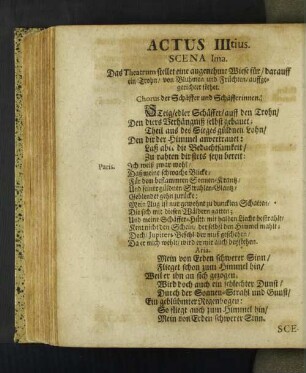 ACTUS IIItius.
SCENA Ima.
Das Theatrum stellet eine angenehme Wiese für/ darauff
ein Trohn/ von Bluhmen und Früchten/ auffge-
gerichtet stehet.
Chorus der Schäffer und Schäfferinnen.
Steig/ edler Schäffer/ auff den Trohn/
Den diers Verhängniß selbst gebauet;
Theil aus des Sieges güldnen Lohn/
Den dir der Himmel anvertrauet:
Laß die Bedachtsamkeit/
Zu rahten dir stets seyn bereit:
Paris. Ich weiß zwar wohl/
Daß meine schwache Blicke/
Für dem Sonnen-
Und seiner güldenen Strahlen-Glantz/
Geblendet gehn zurücke;
Mein Aug ist nur gewohnt zu dunckeln Schatten/
Die sich mit diesen Wäldern gatten;
Und meine Schäffer-Hütt mit halben Licht bestrahlt/
Kennt nicht den Schein/ der selbst den Himmel mahlt;
Doch Jupiters Befehl der muß geschehen/
Da er mich wehlt/ wird er mir auch beystehen.
Aria.
Mein von Erden schwerer Sinn/
Flieget schon zum Himmel hin/
Weil er ihn an sich gezogen.
Wird doch auch ein schlechter Dunst/
Durch der Sonnen-Strahl und Gunst/
Ein geblühmter Regenbogen:
So fliegt auch zum Himmel hin/
Mein von Erden schwerer Sinn.
SCE-